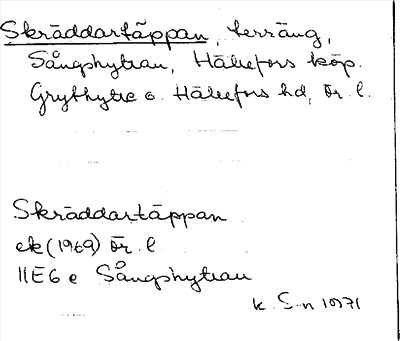 Skräddartäppan, terräng,
Sångshyttan, Hällefors köp.
Grythytte o. Hällefors hd, Ör. l.
Skräddartäppan
ek (1969) Ör. l
11E6e Sångshyttan
k. S-n 1971